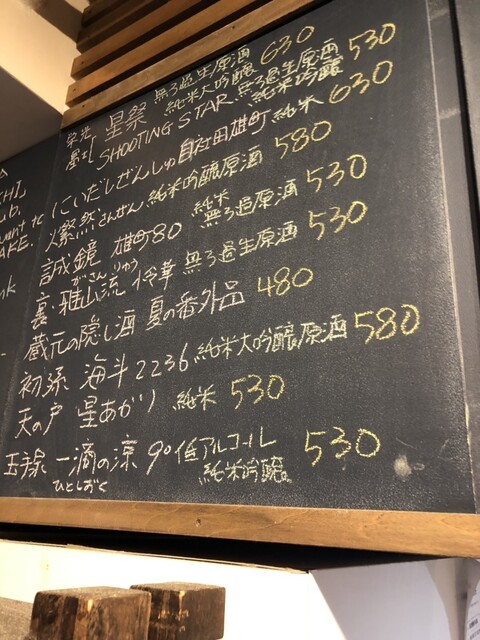 栄光 星祭 無ろ過生原酒 純米大吟醸 630
SHOOTING STAR 無ろ過生原酒 純米吟醸 530
にいだしぜんしゅ 自社田雄町 純米 630
燦然 さんぜん 純米吟醸原酒 580
誠鏡 雄町80 純米 無ろ過原酒 530
裏・雅山流 がさんりゅう 怜華 無ろ過生原酒 530
蔵元の隠し酒 夏の番外品 480
初孫 海斗2236 純米大吟醸原酒 580
天の戸 星あかり 純米 530
玉緑 一滴の涼 ひとしずく 9° 低アルコール 純米吟醸 530
CHI]
ub.
want to
AKE.